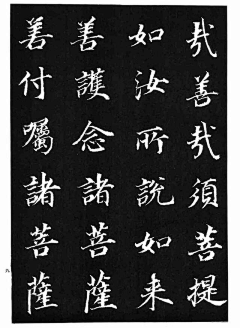 哉善哉須菩提
如汝所說如来
善護念諸菩薩
善付囑諸菩薩
九